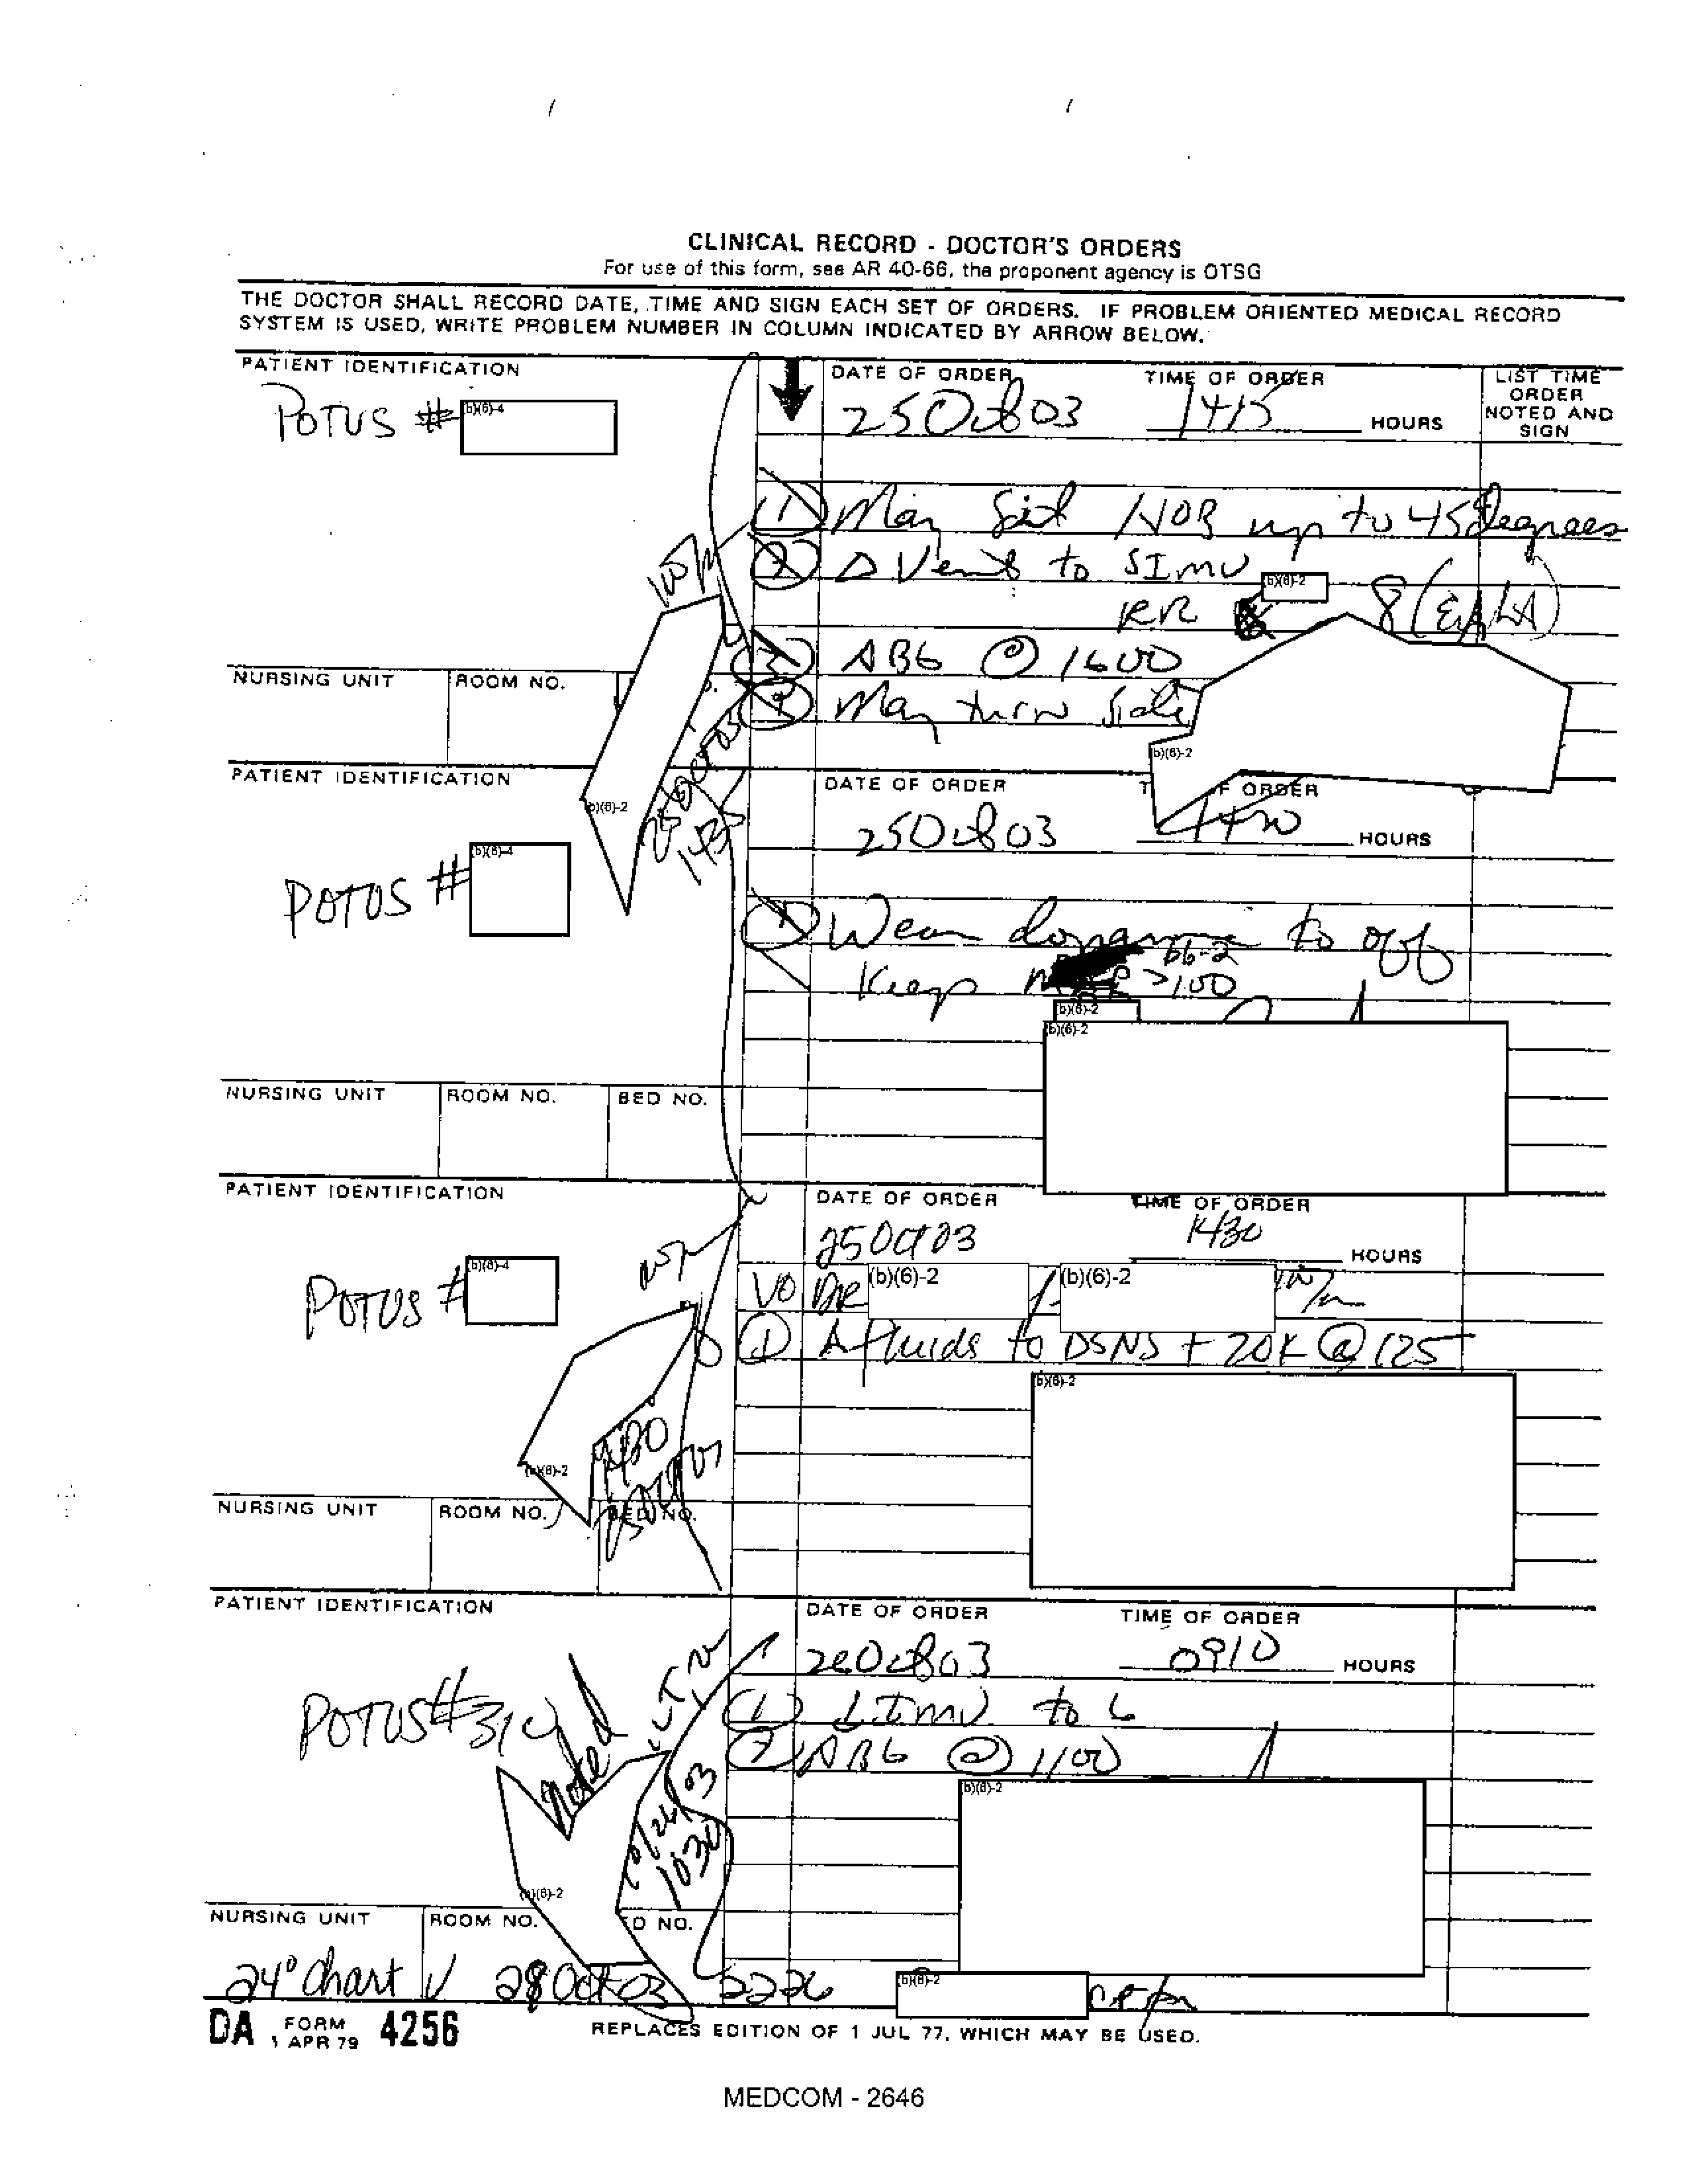 CLINICAL RECORD - DOCTOR'S ORDERS
For use of this form, see AR 40-66, the proponent agency is OTSG
THE DOCTOR SHALL RECORD DATE, TIME AND SIGN EACH SET OF ORDERS. IF PROBLEM ORIENTED MEDICAL RECORD
SYSTEM IS USED, WRITE PROBLEM NUMBER IN COLUMN INDICATED BY ARROW BELOW.
PATIENT IDENTIFICATION
POTUS # (b)(6)-4
DATE OF ORDER
25 Oct 03
TIME OF ORDER
1415 HOURS
LIST TIME
ORDER
NOTED AND
SIGN
(1) May Sit HOB up to 45 degrees
(2) Δ Vent to SIMV (b)(6)-2
RR 8
(3) ABG @ 1600
(4) May turn side
(b)(6)-2
NURSING UNIT ROOM NO.
(b)(6)-2
25 Oct 03
PATIENT IDENTIFICATION
POTUS # (b)(6)-4
DATE OF ORDER
25 Oct 03
OF ORDER
1420 HOURS
(1) Wean dopamine to off
b6-2
Keep >100
(b)(6)-2
(b)(6)-2
NURSING UNIT ROOM NO. BED NO.
PATIENT IDENTIFICATION
POTUS # (b)(6)-4
DATE OF ORDER
25 Oct 03
TIME OF ORDER
1430 HOURS
VO Dr (b)(6)-2 / (b)(6)-2
(1) Δ fluids to D5NS + 20K @ 125
(b)(6)-2
(b)(6)-2
NURSING UNIT ROOM NO. BED NO.
PATIENT IDENTIFICATION
POTUS #
Noted
10/26/03
1030
(b)(6)-2
DATE OF ORDER
26 Oct 03
TIME OF ORDER
0910 HOURS
(1) ↓ IMV to 6
(2) ABG @ 1100
(b)(6)-2
NURSING UNIT ROOM NO. ED NO.
24° Chart √ 28 Oct 03 2226 (b)(6)-2
DA FORM 4256
1 APR 79
REPLACES EDITION OF 1 JUL 77, WHICH MAY BE USED.
MEDCOM - 2646